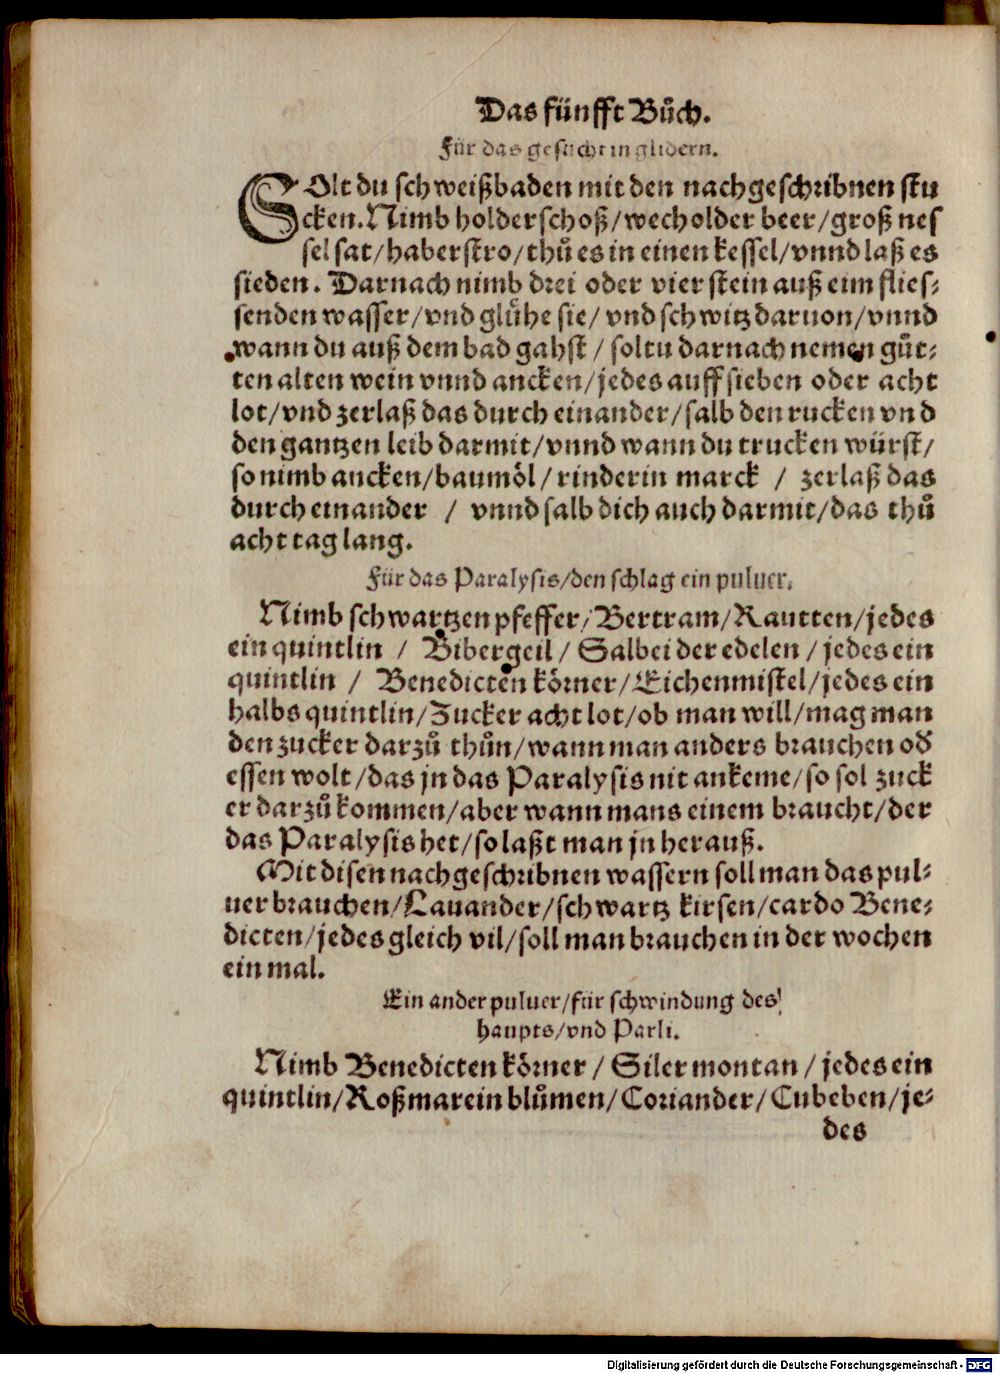 Das fünfft Bůch.
Für das gesücht in glidern.
SOlt du schweißbaden mit den nachgeschribnen stu
cken. Nimb holderschoß/wecholder beer/groß nes
sel sat/haberstro/thů es in einen kessel/vnnd laß es
sieden. Darnach nimb drei oder vier stein auß eim flies⸗
senden wasser/vnd glůhe sie/ vnd schwitz daruon/vnnd
wann du auß dem bad gahst / soltu darnach nemen gůt⸗
ten alten wein vnnd ancken/jedes auff sieben oder acht
lot/vnd zerlaß das durch einander/salb den rucken vnd
den gantzen leib darmit/vnnd wann du trucken würst/
so nimb ancken/baumöl/rinderin marck / zerlaß das
durch einander / vnnd salb dich auch darmit/das thů
acht tag lang.
Für das Paralysis/den schlag ein puluer.
Nimb schwartzen pfeffer/Bertram/Rautten/jedes
ein quintlin / Bibergeil/ Salbei der edelen / jedes ein
quintlin / Benedicten körner/Eichenmistel/jedes ein
halbs quintlin/Zucker acht lot/ob man will/mag man
den zucker darzů thůn/wann man anders brauchen od
essen wolt/das jn das Paralysis nit ankeme/so sol zuck
er darzů kommen/aber wann mans einem braucht/der
das Paralysis het/so laßt man jn herauß.
Mit disen nachgeschribnen wassern soll man das pul⸗
uer brauchen/Lauander/schwartz kirsen/cardo Bene⸗
dicten/jedes gleich vil/soll man brauchen in der wochen
ein mal.
Ein ander puluer/für schwindung des
haupts/vnd Parli.
Nimb Benedicten körner / Siler montan / jedes ein
quintlin/Roßmarein blůmen/Coriander/Cubeben/je⸗
des
Digitalisierung gefördert durch die Deutsche Forschungsgemeinschaft - DFG